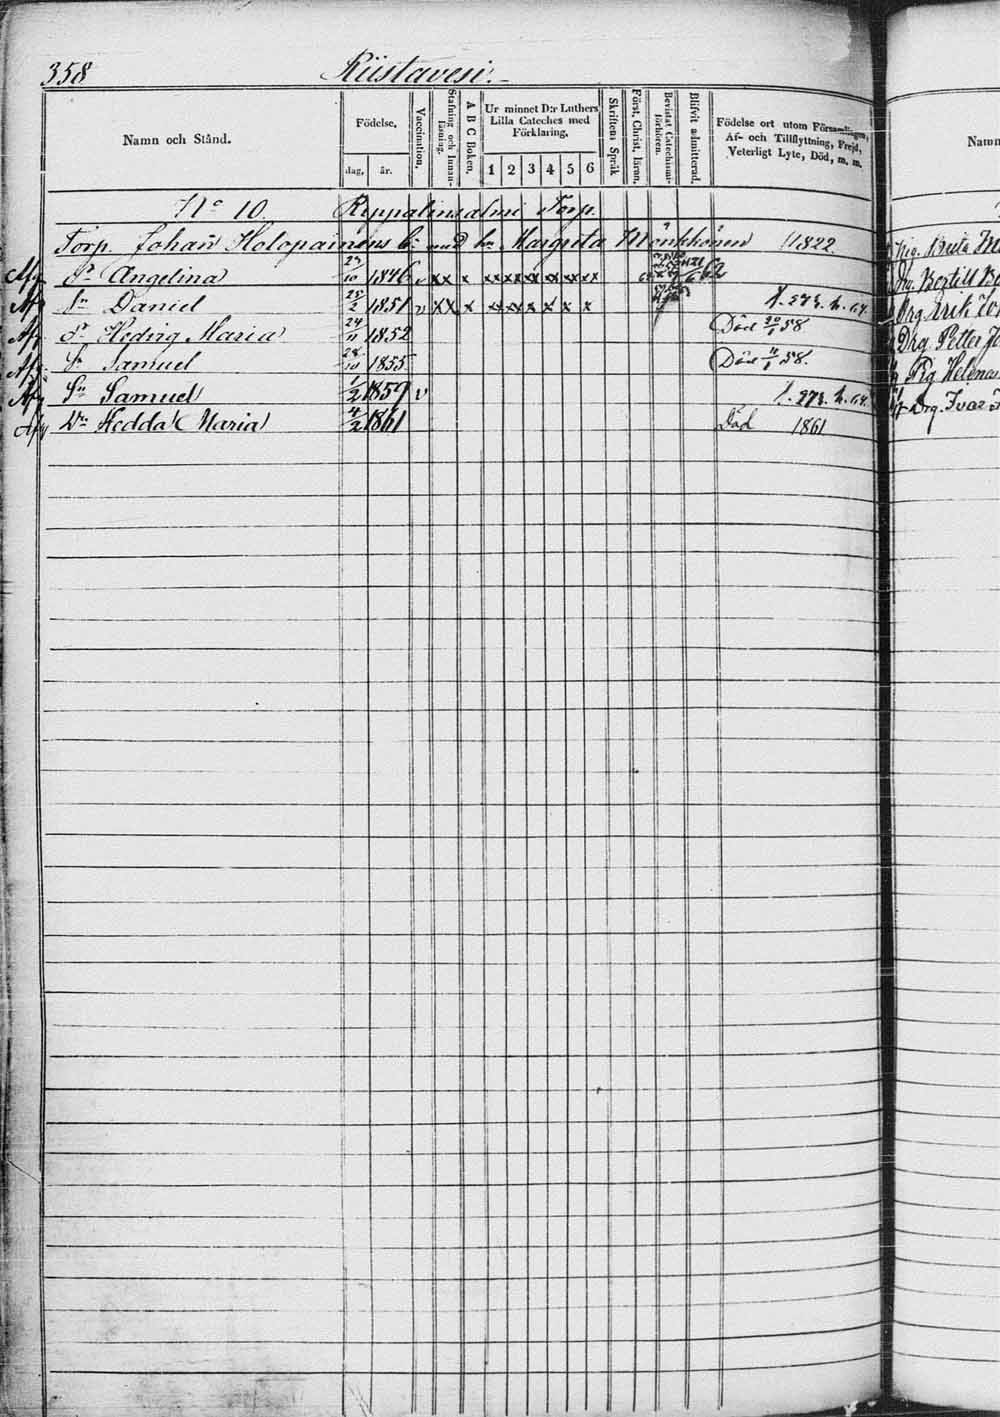 358 Riistavesi.
Namn och Stånd.
Födelse.
dag, år.
Vaccination.
Stafning och Innanläsning.
A B C Boken.
Ur minnet D:r Luthers Lilla Cateches med Förklaring.
1 2 3 4 5 6
Skriftens Språk
Först. Christ. läran.
Bevistat Catechismiförhören.
Blifvit admitterad.
Födelse ort utom Församlingen, Af- och Tillflyttning, Frejd, Veterligt Lyte, Död, m. m.
No 10. Torp.
Torp. Johan Holopainens med Margreta Mönkkönen 1822.
Angelina 1846 v xx x 62
Sn Daniel 25/2 1851 v xx x x x s. 273.
Hedvig Maria 24/11 1852 Död 58
Sn Samuel 1855 Död 58.
Sn Samuel 1/2 1859 v s. 273.
Hedda Maria 4/2 1861 Död 1861
Namn
Drg. Bertill
Drg. Erik
Drg. Petter
Pig Helena
Drg. Ivar